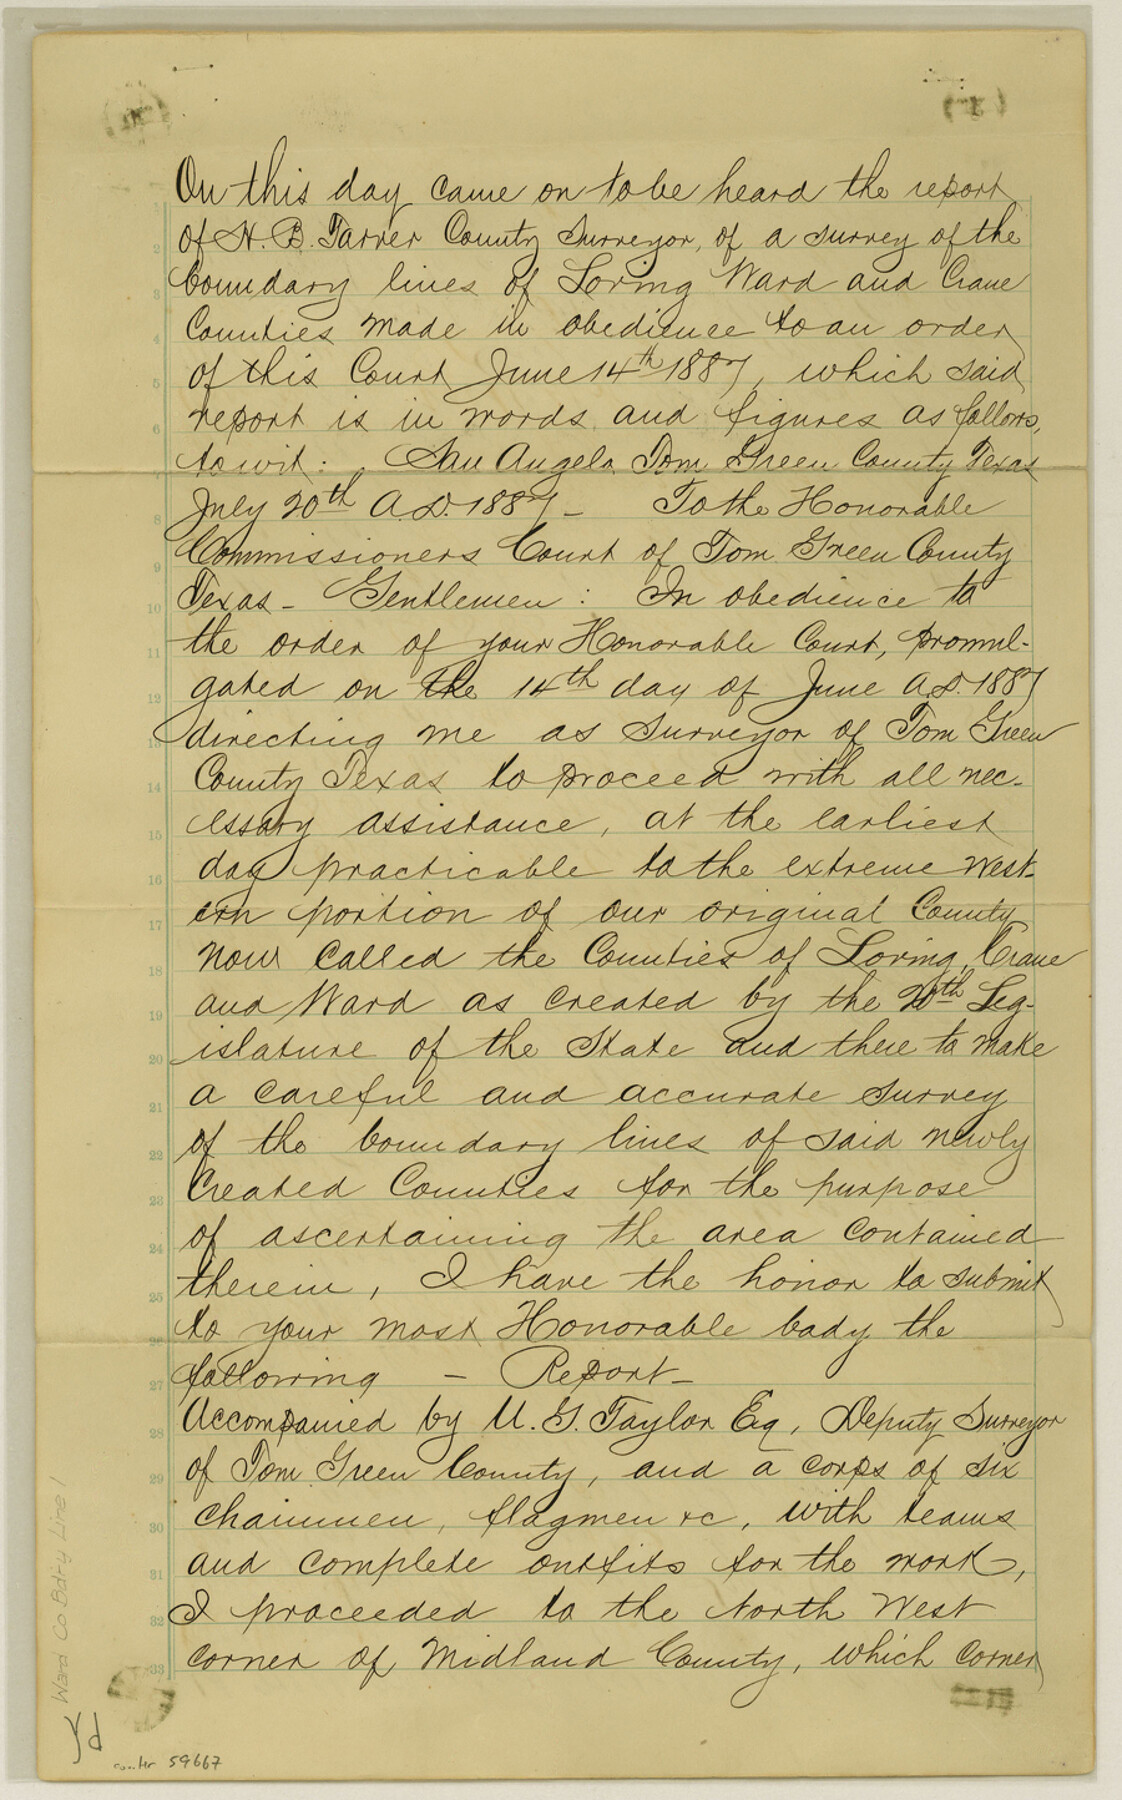 On this day came on to be heard the report
of H. B. Tarver County Surveyor, of a survey of the
boundary lines of Loring Ward and Crane
Counties made in obedience to an order
of this Court June 14th 1887, which said
report is in words and figures as follows,
to wit: San Angelo Tom Green County Texas
July 20th A.D. 1887 - To the Honorable
Commissioners Court of Tom Green County
Texas - Gentlemen: In obedience to
the order of your Honorable Court, promul-
gated on the 14th day of June A.D. 1887
directing me as Surveyor of Tom Green
County Texas to proceed with all nec-
essary assistance, at the earliest
day practicable to the extreme West-
ern portion of our original County
now called the Counties of Loring, Crane
and Ward as created by the 20th Leg-
islature of the State and there to make
a careful and accurate survey
of the boundary lines of said newly
created Counties for the purpose
of ascertaining the area contained
therein, I have the honor to submit
to your most Honorable body the
following - Report -
Accompanied by U. G. Taylor Eq, Deputy Surveyor
of Tom Green County, and a corps of six
chainmen, flagmen &c, with teams
and complete outfits for the work,
I proceeded to the North West
corner of Midland County, which corner
Ward Co Bdry Line 1
counter 59667